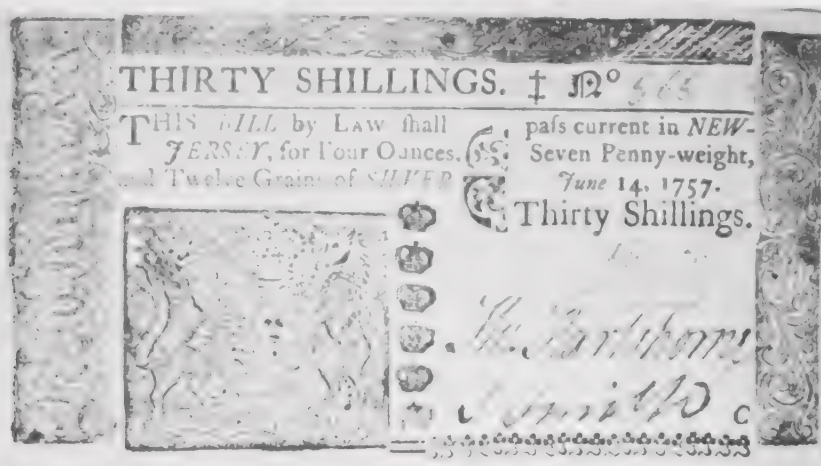 THIRTY SHILLINGS. ‡ Nº 565
THIS BILL by LAW ſhall paſs current in NEW-
JERSEY, for Four Ounces, Seven Penny-weight,
and Twelve Grains of SILVER. June 14, 1757.
Thirty Shillings.
Smith
C